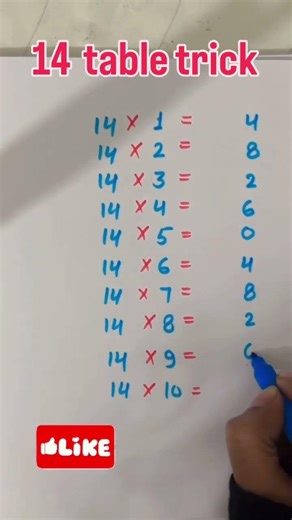 14 table trick
14 × 1 = 4
14 × 2 = 8
14 × 3 = 2
14 × 4 = 6
14 × 5 = 0
14 × 6 = 4
14 × 7 = 8
14 × 8 = 2
14 × 9 =
14 × 10 =
LiKE